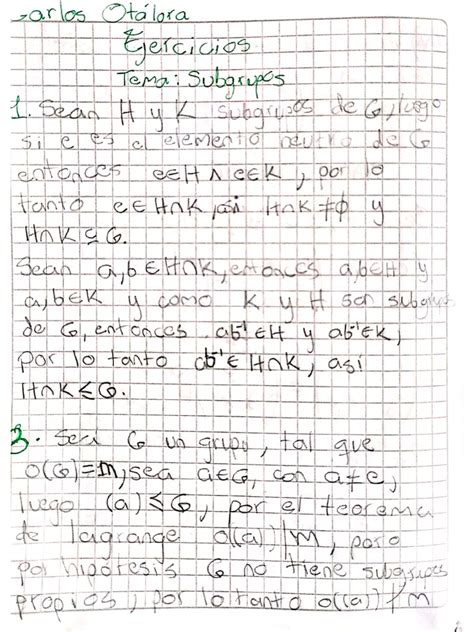 Carlos Otálora
Ejercicios
Tema: Subgrupos
1. Sean H y K subgrupos de G, luego
si e es el elemento neutro de G
entonces e∈H ∧ e∈K, por lo
tanto e∈H∩K, así H∩K ≠ ∅ y
H∩K ⊆ G.
Sean a,b ∈ H∩K, entonces a,b∈H y
a,b∈K y como K y H son subgrupos
de G, entonces ab⁻¹∈H y ab⁻¹∈K,
por lo tanto ab⁻¹∈ H∩K, así
H∩K ≤ G.
3. Sea G un grupo, tal que
o(G)=m, sea a∈G, con a≠e,
luego (a) ≤ G, por el teorema
de lagrange o((a))|m, pero
por hipótesis G no tiene subgrupos
propios, por lo tanto o((a))∤m